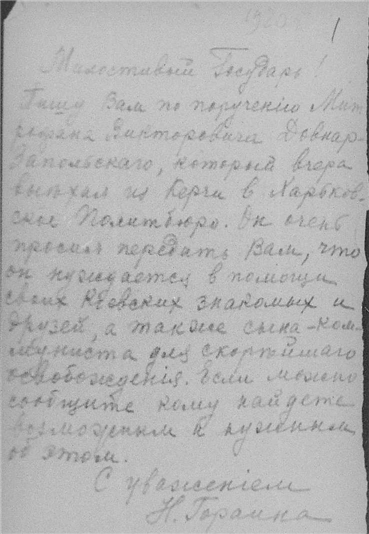 1920
1
Милостивый Государь!
Пишу Вам по порученію Мит
рофана Викторовича Довнар-
Запольскаго, который вчера
выѣхал из Керчи в Харьков-
ское Политбюро. Он очень
просил передать Вам, что
он нуждается в помощи
своих Кіевских знакомых и
друзей, а также сына-ком-
муниста для скорѣйшаго
освобожденія. Если можно
сообщите кому найдете
возможным и нужным
об этом.
С уваженіем
Н. Гораина